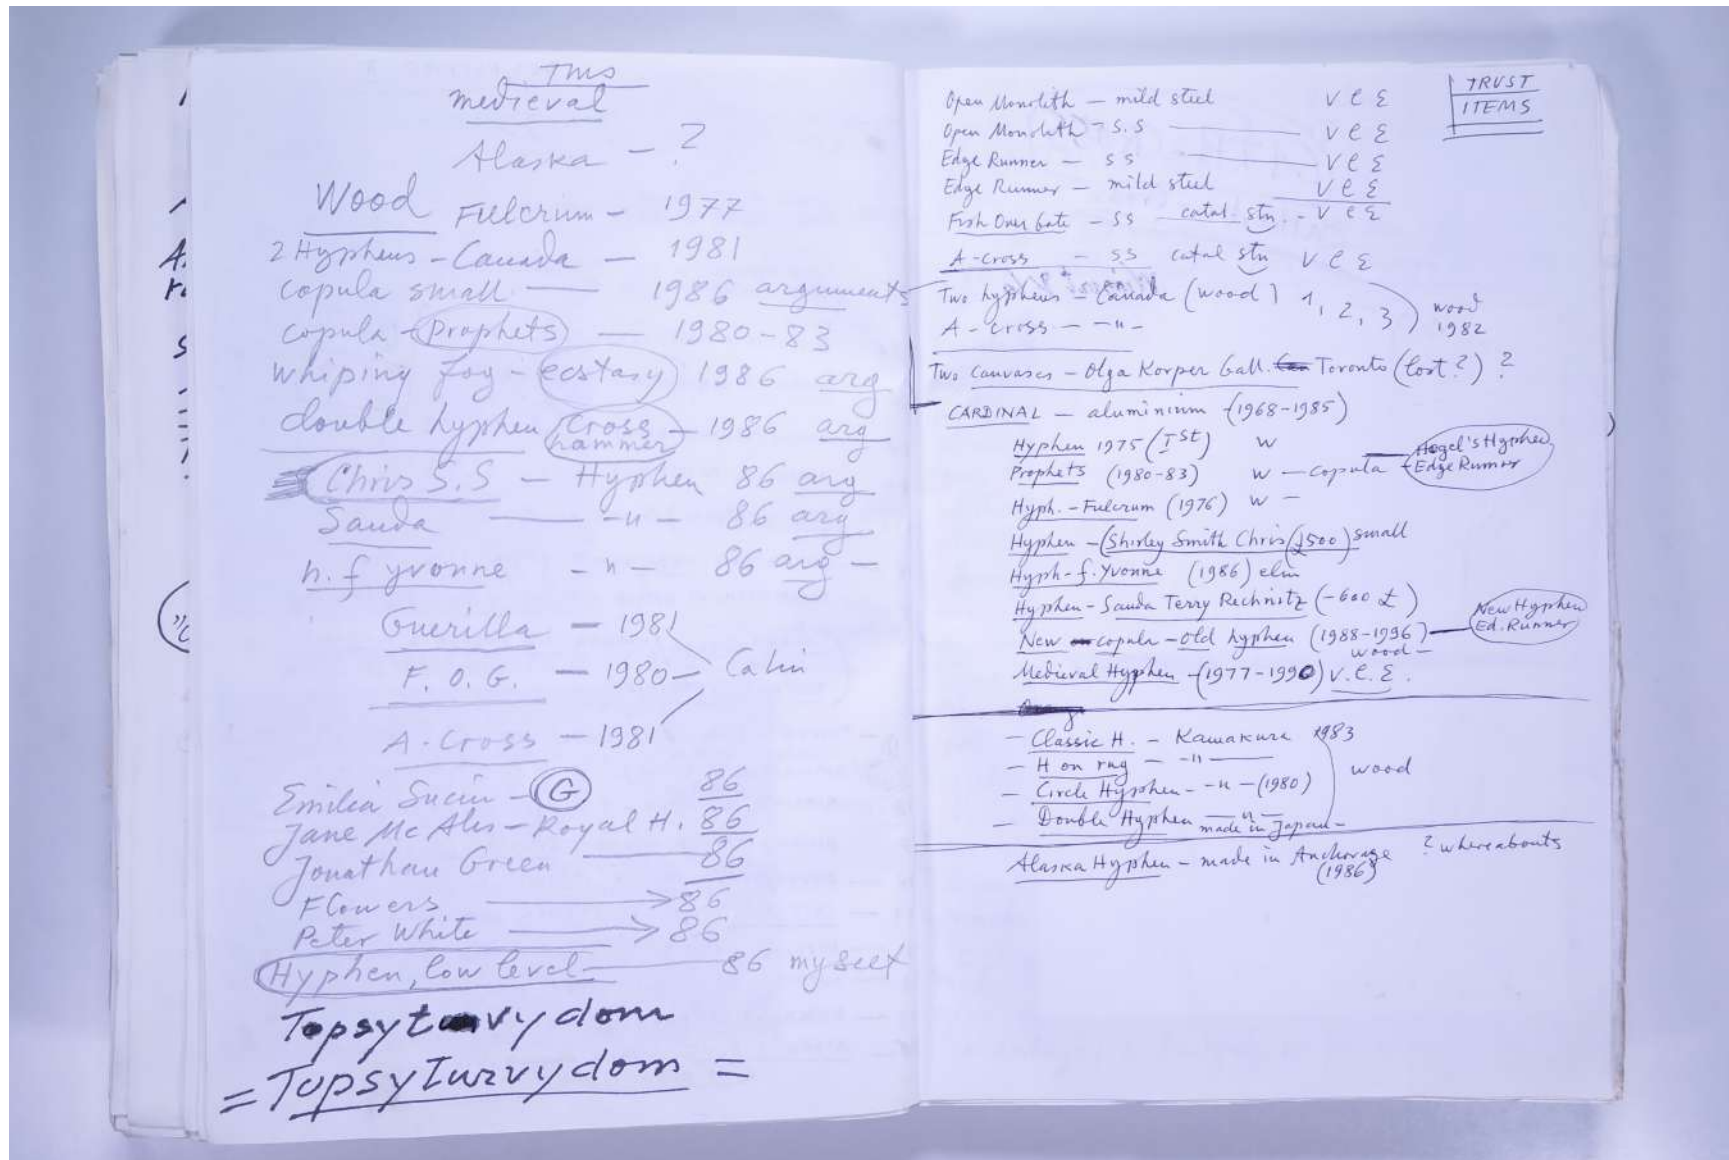 This
medieval
Alaska - ?
Wood Fulcrum - 1977
2 Hyphens - Canada - 1981
copula small — 1986 arguments
copula - Prophets — 1980-83
whiping fog - ecstasy 1986 arg
double hyphen Cross hammer - 1986 arg
Chris S.S - Hyphen 86 arg
Sauda — -"- 86 arg
h. f yvonne - " - 86 arg -
Guerilla - 1981
F. O. G. - 1980 - Calin
A-Cross - 1981
Emilia Suciu - G 86
Jane Mc Ales - Royal H. 86
Jonathan Green — 86
Flowers → 86
Peter White → 86
Hyphen, low level - 86 myself
Topsyturvydom
= TopsyTurvydom =
TRUST
ITEMS
Open Monolith - mild steel V C Σ
Open Monolith - S.S — V C Σ
Edge Runner - SS — V C Σ
Edge Runner - mild steel V C Σ
Fish Over Gate - SS catal stn. - V C Σ
A-cross - SS catal stn V C Σ
Two hyphens - Canada (wood) 1, 2, 3) wood
A-cross - -"- 1982
Two canvases - Olga Korper Gall. Toronto (lost?) ?
CARDINAL - aluminium - (1968-1985)
Hyphen 1975 (Ist) w
Prophets (1980-83) w - copula - Hegel's Hyphen Edge Runner
Hyph. - Fulcrum (1976) w -
Hyphen - (Shirley Smith Chris (£500) small
Hyph - f. Yvonne (1986) elm
Hyphen - Sauda Terry Rechnitz (-600 £)
New copula - old hyphen (1988-1996) - New Hyphen Ed. Runner
wood -
Medieval Hyphen - (1977-1990) V. C. Σ.
- Classic H. - Kamakura 1983
- H on rug - -"-
- Circle Hyphen - -"- (1980) wood
- Double Hyphen -"-
made in Japan -
Alaska Hyphen - made in Anchorage ? whereabouts
(1986)